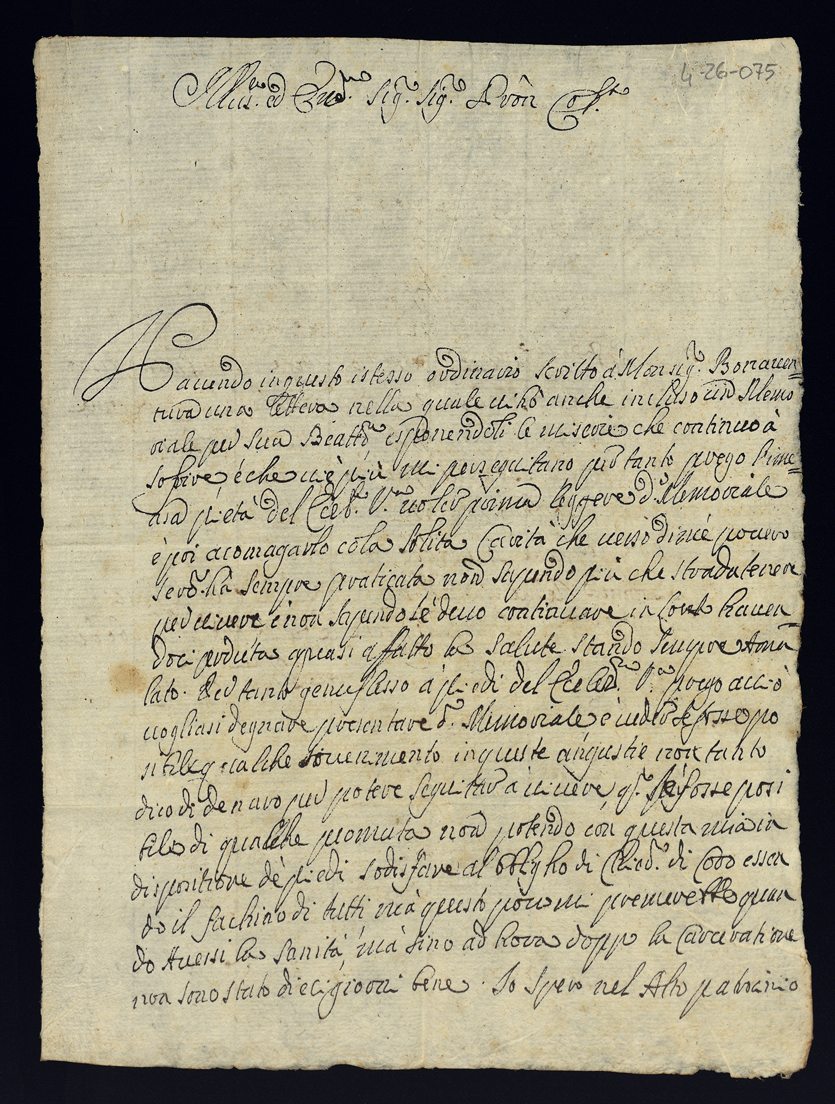 4-26-075
Illus.mo ed Ecc.mo Sig.r Sig.r P'ron Col.mo
Hauendo in questo istesso ordinario scritto à Monsig.r Bonauen=
tura una lettera nella quale ui hò anche incluso un Memo
riale per Sua Beatt.ne esponendoli le miserie che continuo à
sofrire é che uie più mi perseguitano per tanto prego l'ime=
nsa pietà del V.ra uoler prima leggere d.o Memoriale
é poi acompagnarlo cola solita Carità che uerso di mé pouero
seru.re ha sempre praticata non sapendo più che strada tenere
per uiuere é non sapendo sé deuo continuare in Corte hauen
doci perduta quasi affatto la salute stando sempre Ama
lato. Per tanto genuflesso à piedi del V.ra prego acciò
uogliasi degnare presentare d.o Memoriale é ueder se fosse po
sibile qualche souenimento in queste angustie non tanto
dico di denaro per potere seguitar à uiuere q.to sé fosse posi
bile di qualche promuta non potendo con questa mia in
dispositione dé piedi sodisfare al obligho di di Coro essen
do il fachino di tutti mà questo pòco mi premerebbe quan
do Auessi la sanità, mà sino ad hora doppo la Carceratione
non sono stato dieci giorni bene. Io spero nel Alto patrocinio